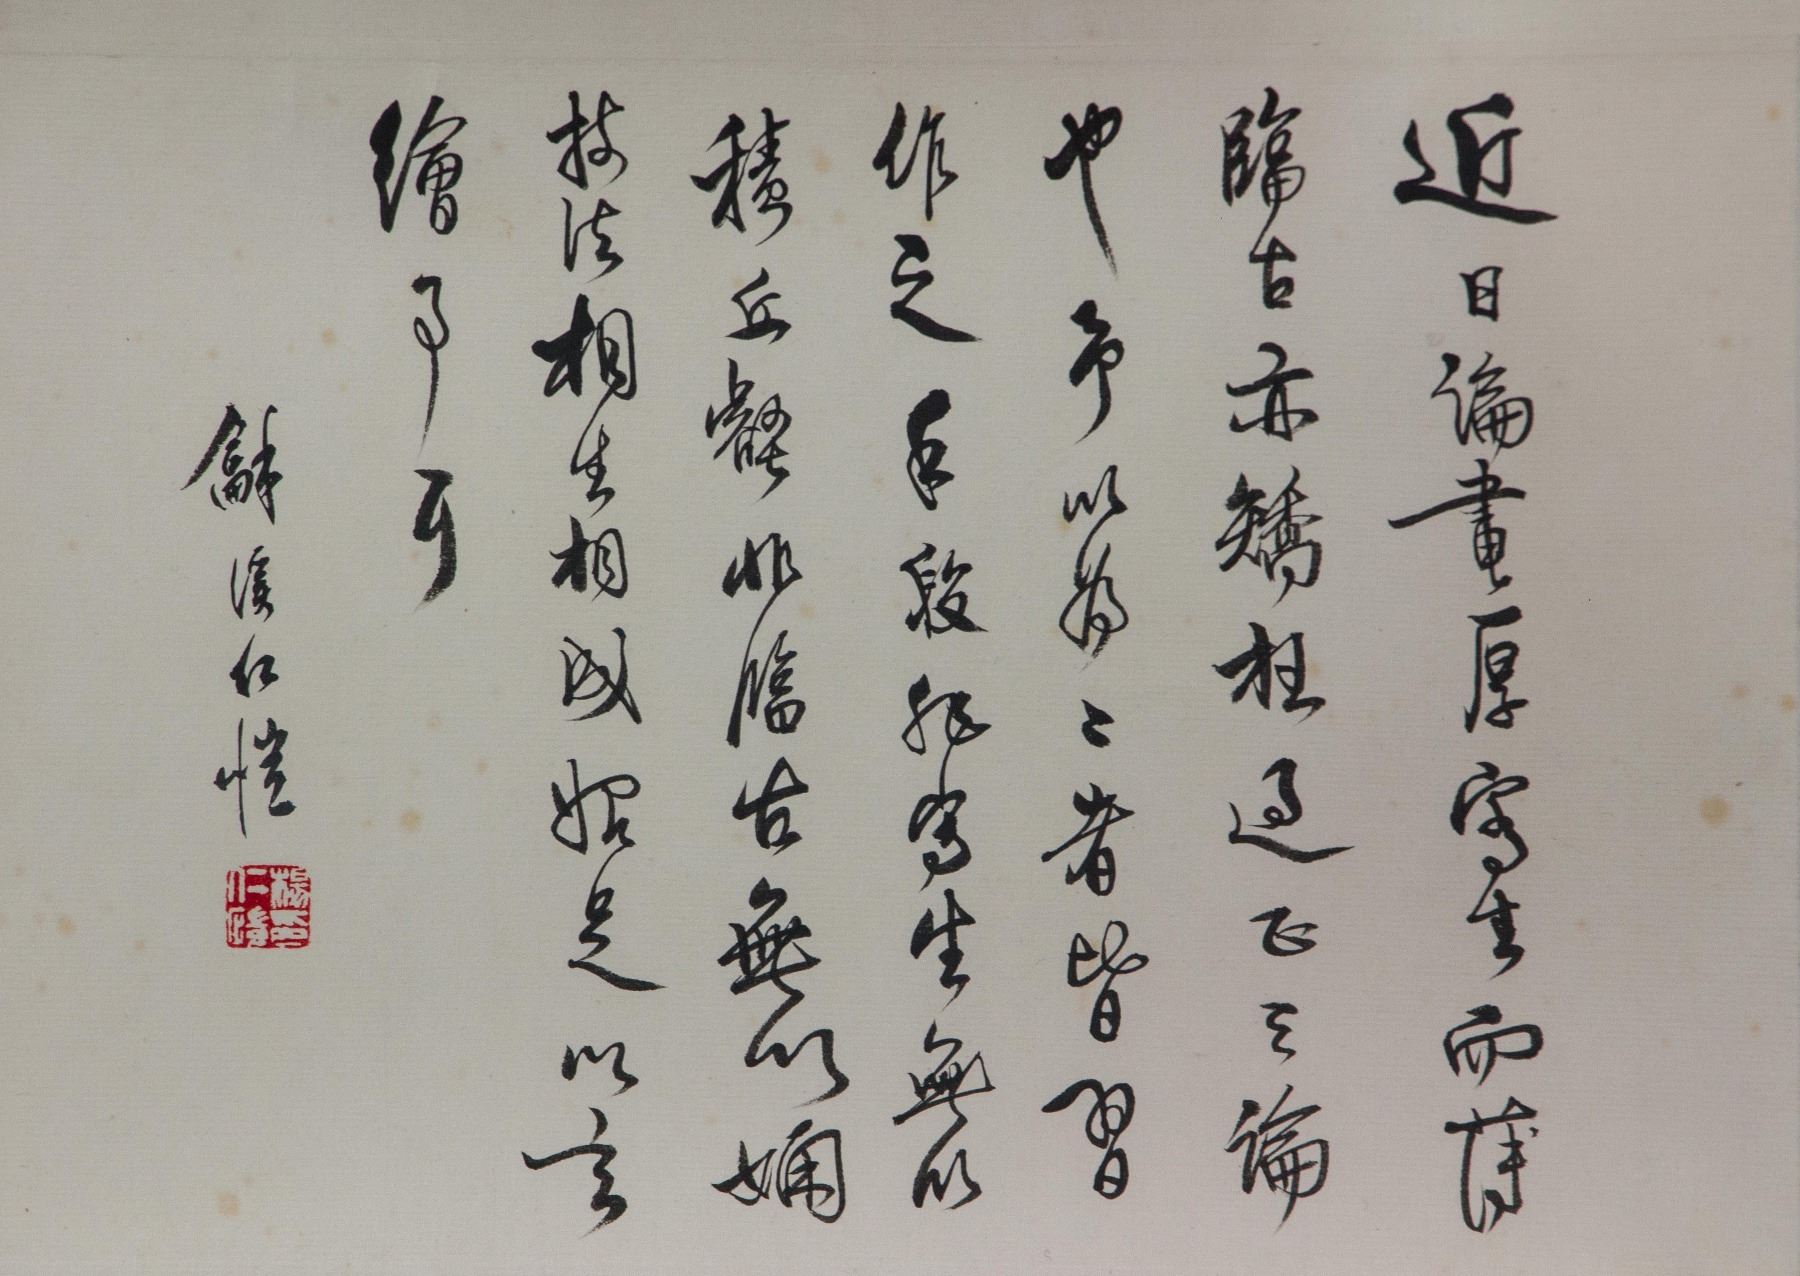 近日論畫厚寫生而薄
臨古亦矯枉過正之論
也予以為二者皆習
作之手段非寫生無以
積丘壑非臨古無以嫻
技法相生相成始足以言
繪事耳
龢溪仁愷
楊仁愷印